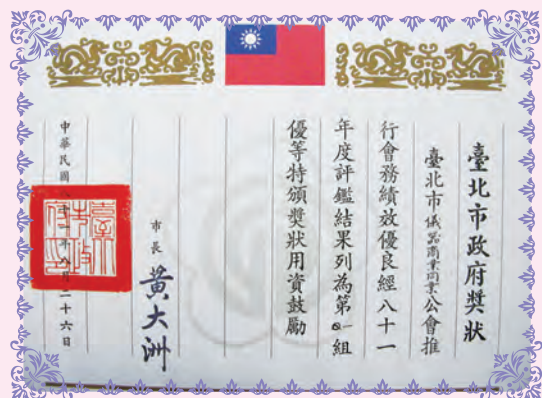 臺北市政府獎狀
臺北市儀器商業同業公會推
行會務績效優良經八十一
年度評鑑結果列為第一組
優等特頒獎狀用資鼓勵
市長 黃大洲
中華民國八十一年八月二十六日
臺北市政府印